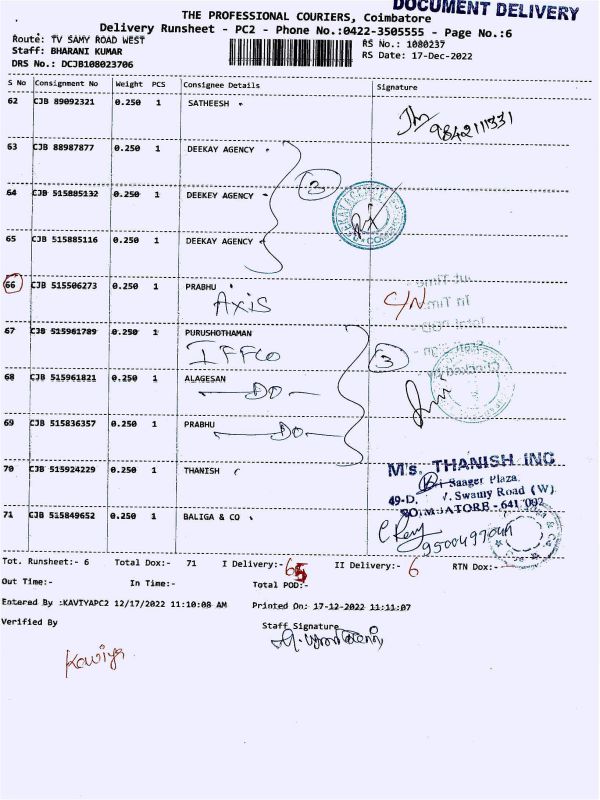 DOCUMENT DELIVERY
THE PROFESSIONAL COURIERS, Coimbatore
Delivery Runsheet - PC2 - Phone No.:0422-3505555 - Page No.:6
Route: TV SAMY ROAD WEST RS No.: 1080237
Staff: BHARANI KUMAR RS Date: 17-Dec-2022
DRS No.: DCJB108023706
S No Consignment No Weight PCS Consignee Details Signature
62 CJB 89092321 0.250 1 SATHEESH
9842111331
63 CJB 88987877 0.250 1 DEEKAY AGENCY
3
64 CJB 515885132 0.250 1 DEEKEY AGENCY
65 CJB 515885116 0.250 1 DEEKAY AGENCY
66 CJB 515506273 0.250 1 PRABHU
AXIS C/N
67 CJB 515961789 0.250 1 PURUSHOTHAMAN
IFFCO 3
68 CJB 515961821 0.250 1 ALAGESAN
DO
69 CJB 515836357 0.250 1 PRABHU
DO
70 CJB 515924229 0.250 1 THANISH
M/s. THANISH INC
Saager Plaza,
49-D, V. Swamy Road (W)
COIMBATORE - 641 002
71 CJB 515849652 0.250 1 BALIGA & CO
Tot. Runsheet:- 6 Total Dox:- 71 I Delivery:- 65 II Delivery:- 6 RTN Dox:-
Out Time:- In Time:- Total POD:-
Entered By :KAVIYAPC2 12/17/2022 11:10:08 AM Printed On: 17-12-2022 11:11:07
Verified By Staff Signature
Kaviya